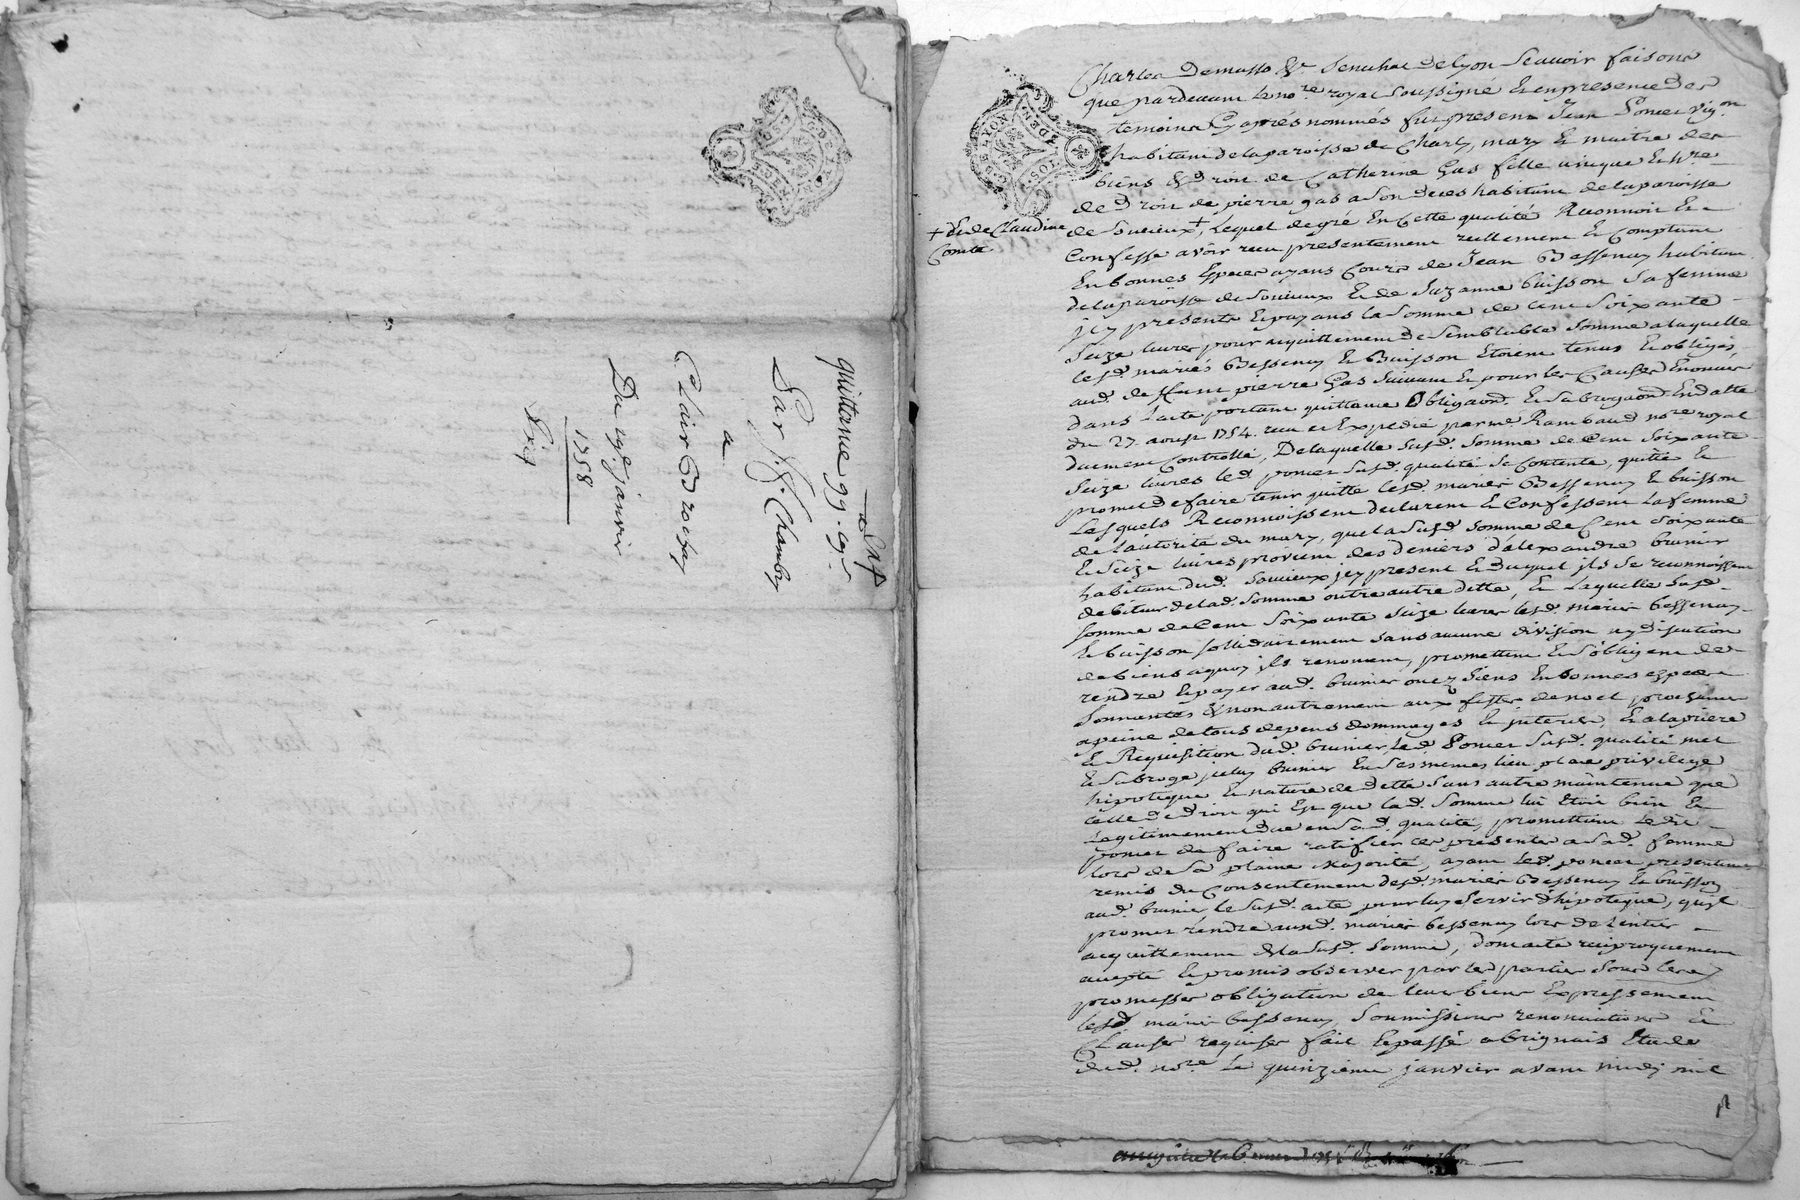 quittance 99. 19s.
Par J. F. Chambry
a
Clair Drozay
Du 19e janvier
1758
Charles Demasso &c. Senechal de Lyon Scavoir faisons
que pardevant le nore royal soussigné et en presence des
temoins cy apres nommés fut present Jean Poncet vigon
habitant de la paroisse de Charly, mary et maitre des
biens & droit de Catherine Gas fille unique et hre
de droit de pierre gas a son deces habitant de la paroisse
+ et de Claudine
Comte
de Soucieux +, Lequel de gré En Cette qualité Reconnoit Et
Confesse avoir recu presentement reellement et Comptant
En bonnes Especes ayans Cours de Jean Bessenay habitant
de la paroisse de Soucieux et de Suzanne buisson sa femme
jcy presents et payans la Somme de Cent Soixante
Seize livres pour acquittement de Semblable Somme a laquelle
lesd. mariés Bessenay et Buisson Etoient tenus et obligés
aud. deffunt pierre Gas Suivant et pour les Causes Enoncées
dans l'acte portant quittance Obligaon. et Subrogaon. En datte
du 27. aoust 1754. recu et Expedié par me Rambaud nore royal
duement Controllé, De laquelle Susd. Somme de Cent Soixante
Seize livres led. poncet susd. qualité Se Contente, quitte et
promet de faire tenir quitte lesd. mariés Bessenay et buisson
Lesquels Reconnoissent declarent et Confessent la femme
de l'autorité du mary, que la Susd. Somme de Cent Soixante
et Seize livres provient des deniers d'alexandre brunier
habitant dud. Soucieux jcy present et duquel jls Se reconnoissent
debiteurs de lad. Somme outre autre dette, et laquelle Susd.
Somme de Cent Soixante Seize livres lesd. mariés bessenay
et buisson sollidairement sans aucune division ny discution
de biens a quoy jls renoncent, promettent et S'obligent de
rendre et payer aud. brunier ou ez Siens En bonnes especes
Sonnantes & non autrement aux festes de noel prochaines
a peine de tous depens dommages et jnterets, et a la priere
et Requisition dud. brunier, led. Poncet Susd. qualité met
et Subroge jceluy brunier En Ses memes lieu place privilege
hipoteque et nature de dette Sans autre maintenue que
Celle de droit qui Est que lad. Somme lui Etoit bien et
Legitimement due en Sad. qualité, promettant ledit
poncet de faire ratifier ces presentes a Sad. femme
lors de Sa plaine Majorité, ayant led. poncet presentement
remis du Consentement desd. mariés Bessenay et buisson
aud. brunier le Susd. acte pour luy Servir d'hipoteque, qu'jl
promet rendre auxd. mariés bessenay lors de l'entier
acquittement de la Susd. Somme, dont acte reciproquement
accepté et promis observer par les parties Sous leurs
promesses obligation de leurs biens Expressement
lesd. mariés bessenay Soumissions renonciations et
Clauses requises fait et passé a brignais Etude
dud. nore. Le quinzieme janvier avant midy mil